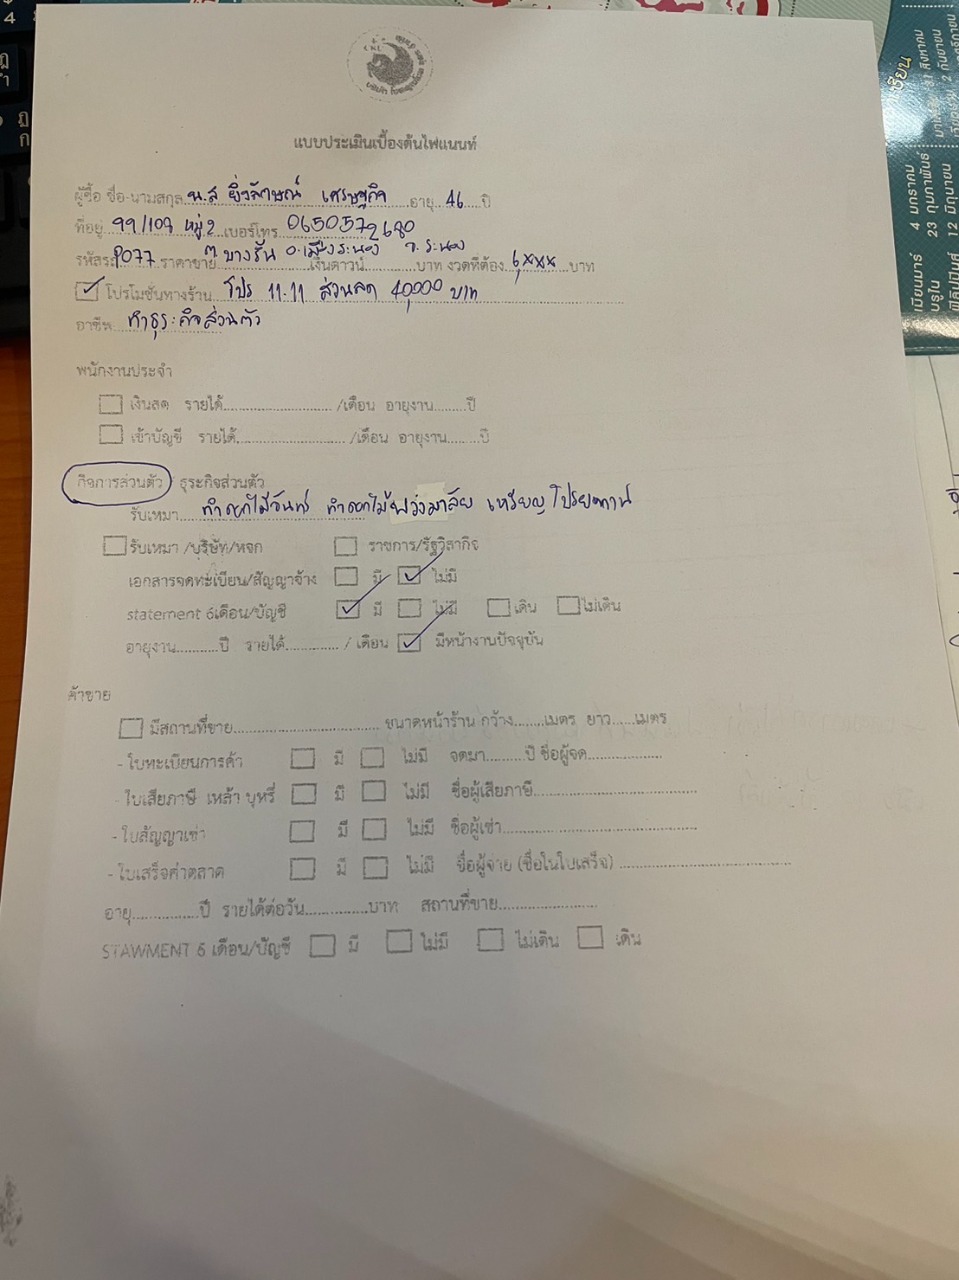 แบบประเมินเบื้องต้นไฟแนนท์
ผู้ซื้อ ชื่อ-นามสกุล น.ส ยิ่งลักษณ์ เศรษฐกิจ อายุ 46 ปี
ที่อยู่ 99/109 หมู่ 2 เบอร์โทร 0650572680
ต.บางริ้น อ.เมืองระนอง จ.ระนอง
รหัสรถ 9077 ราคาขาย เงินดาวน์ บาท งวดที่ต้อง 6,xxx บาท
โปรโมชั่นทางร้าน โปร 11.11 ส่วนลด 40,000 บาท
อาชีพ ทำธุระกิจส่วนตัว
พนักงานประจำ
เงินสด รายได้ /เดือน อายุงาน ปี
เข้าบัญชี รายได้ /เดือน อายุงาน ปี
กิจการส่วนตัว ธุระกิจส่วนตัว
รับเหมา ทำดอกไม้จันทร์ ทำดอกไม้พวงมาลัย เหรียญโปรยทาน
รับเหมา /บริษัท/หจก ราชการ/รัฐวิสากิจ
เอกสารจดทะเบียน/สัญญาจ้าง มี ไม่มี
statement 6เดือน/บัญชี มี ไม่มี เดิน ไม่เดิน
อายุงาน ปี รายได้ / เดือน มีหน้างานปัจจุบัน
ค้าขาย
มีสถานที่ขาย ขนาดหน้าร้าน กว้าง เมตร ยาว เมตร
- ใบทะเบียนการค้า มี ไม่มี จดมา ปี ชื่อผู้จด
- ใบเสียภาษี เหล้า บุหรี่ มี ไม่มี ชื่อผู้เสียภาษี
- ใบสัญญาเช่า มี ไม่มี ชื่อผู้เช่า
- ใบเสร็จค่าตลาด มี ไม่มี ชื่อผู้จ่าย (ชื่อในใบเสร็จ)
อายุ ปี รายได้ต่อวัน บาท สถานที่ขาย
STAWMENT 6 เดือน/บัญชี มี ไม่มี ไม่เดิน เดิน
เมียนมาร์ 4 มกราคม
บรูไน 23 กุมภาพันธ์
ฟิลิปปินส์ 12 มิถุนายน